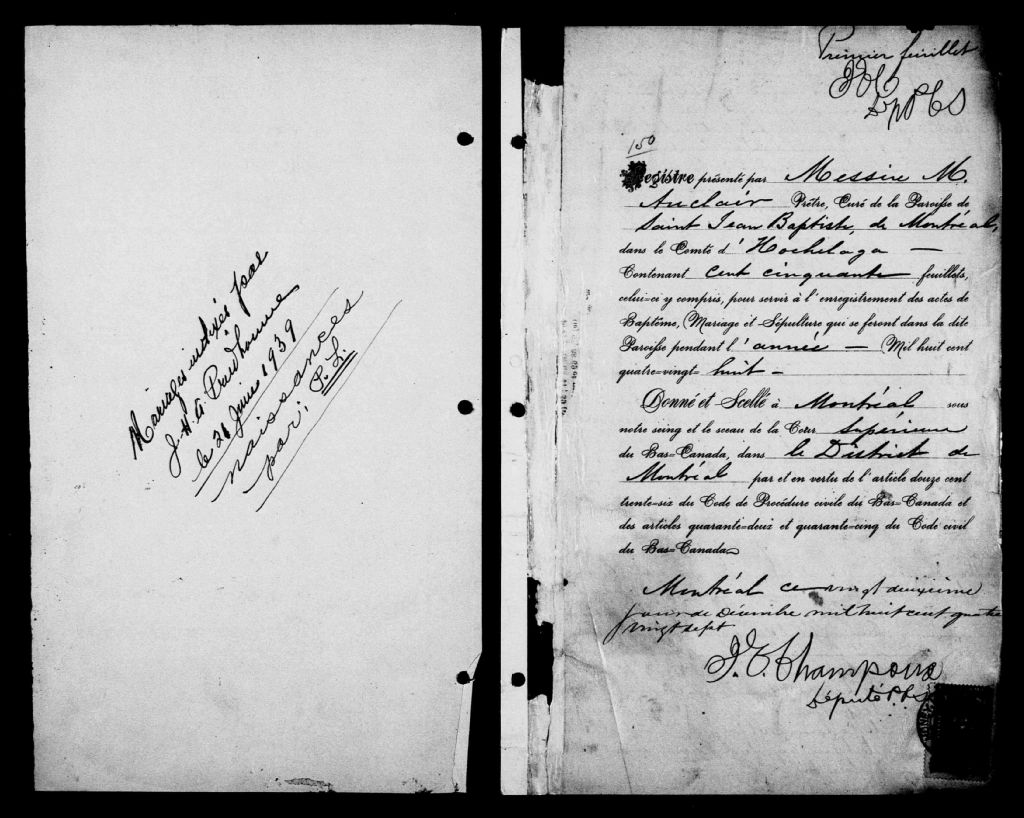 Mariages indexés par
J. A. Prudhomme
le 26 Juin 1939
naissances
par: P. L.
Premier feuillet
150
Registre présenté par Messire M.
Auclair Prêtre, Curé de la Paroisse de
Saint Jean Baptiste, de Montréal,
dans le Comté d'Hochelaga —
Contenant cent cinquante feuillets,
celui-ci y compris, pour servir à l'enregistrement des actes de
Baptême, Mariage et Sépulture qui se feront dans la dite
Paroisse pendant l'année — Mil huit cent
quatre-vingt-huit —
Donné et Scellé à Montréal sous
notre seing et le sceau de la Cour Supérieure
du Bas-Canada, dans le District de
Montréal par et en vertu de l'article douze cent
trente-six du Code de Procédure civile du Bas-Canada et
des articles quarante-deux et quarante-cinq du Code civil
du Bas-Canada
Montréal ce vingt deuxième
jour de Décembre mil huit cent quatre
vingt sept
J. E. Champoux
Député P. C. S.